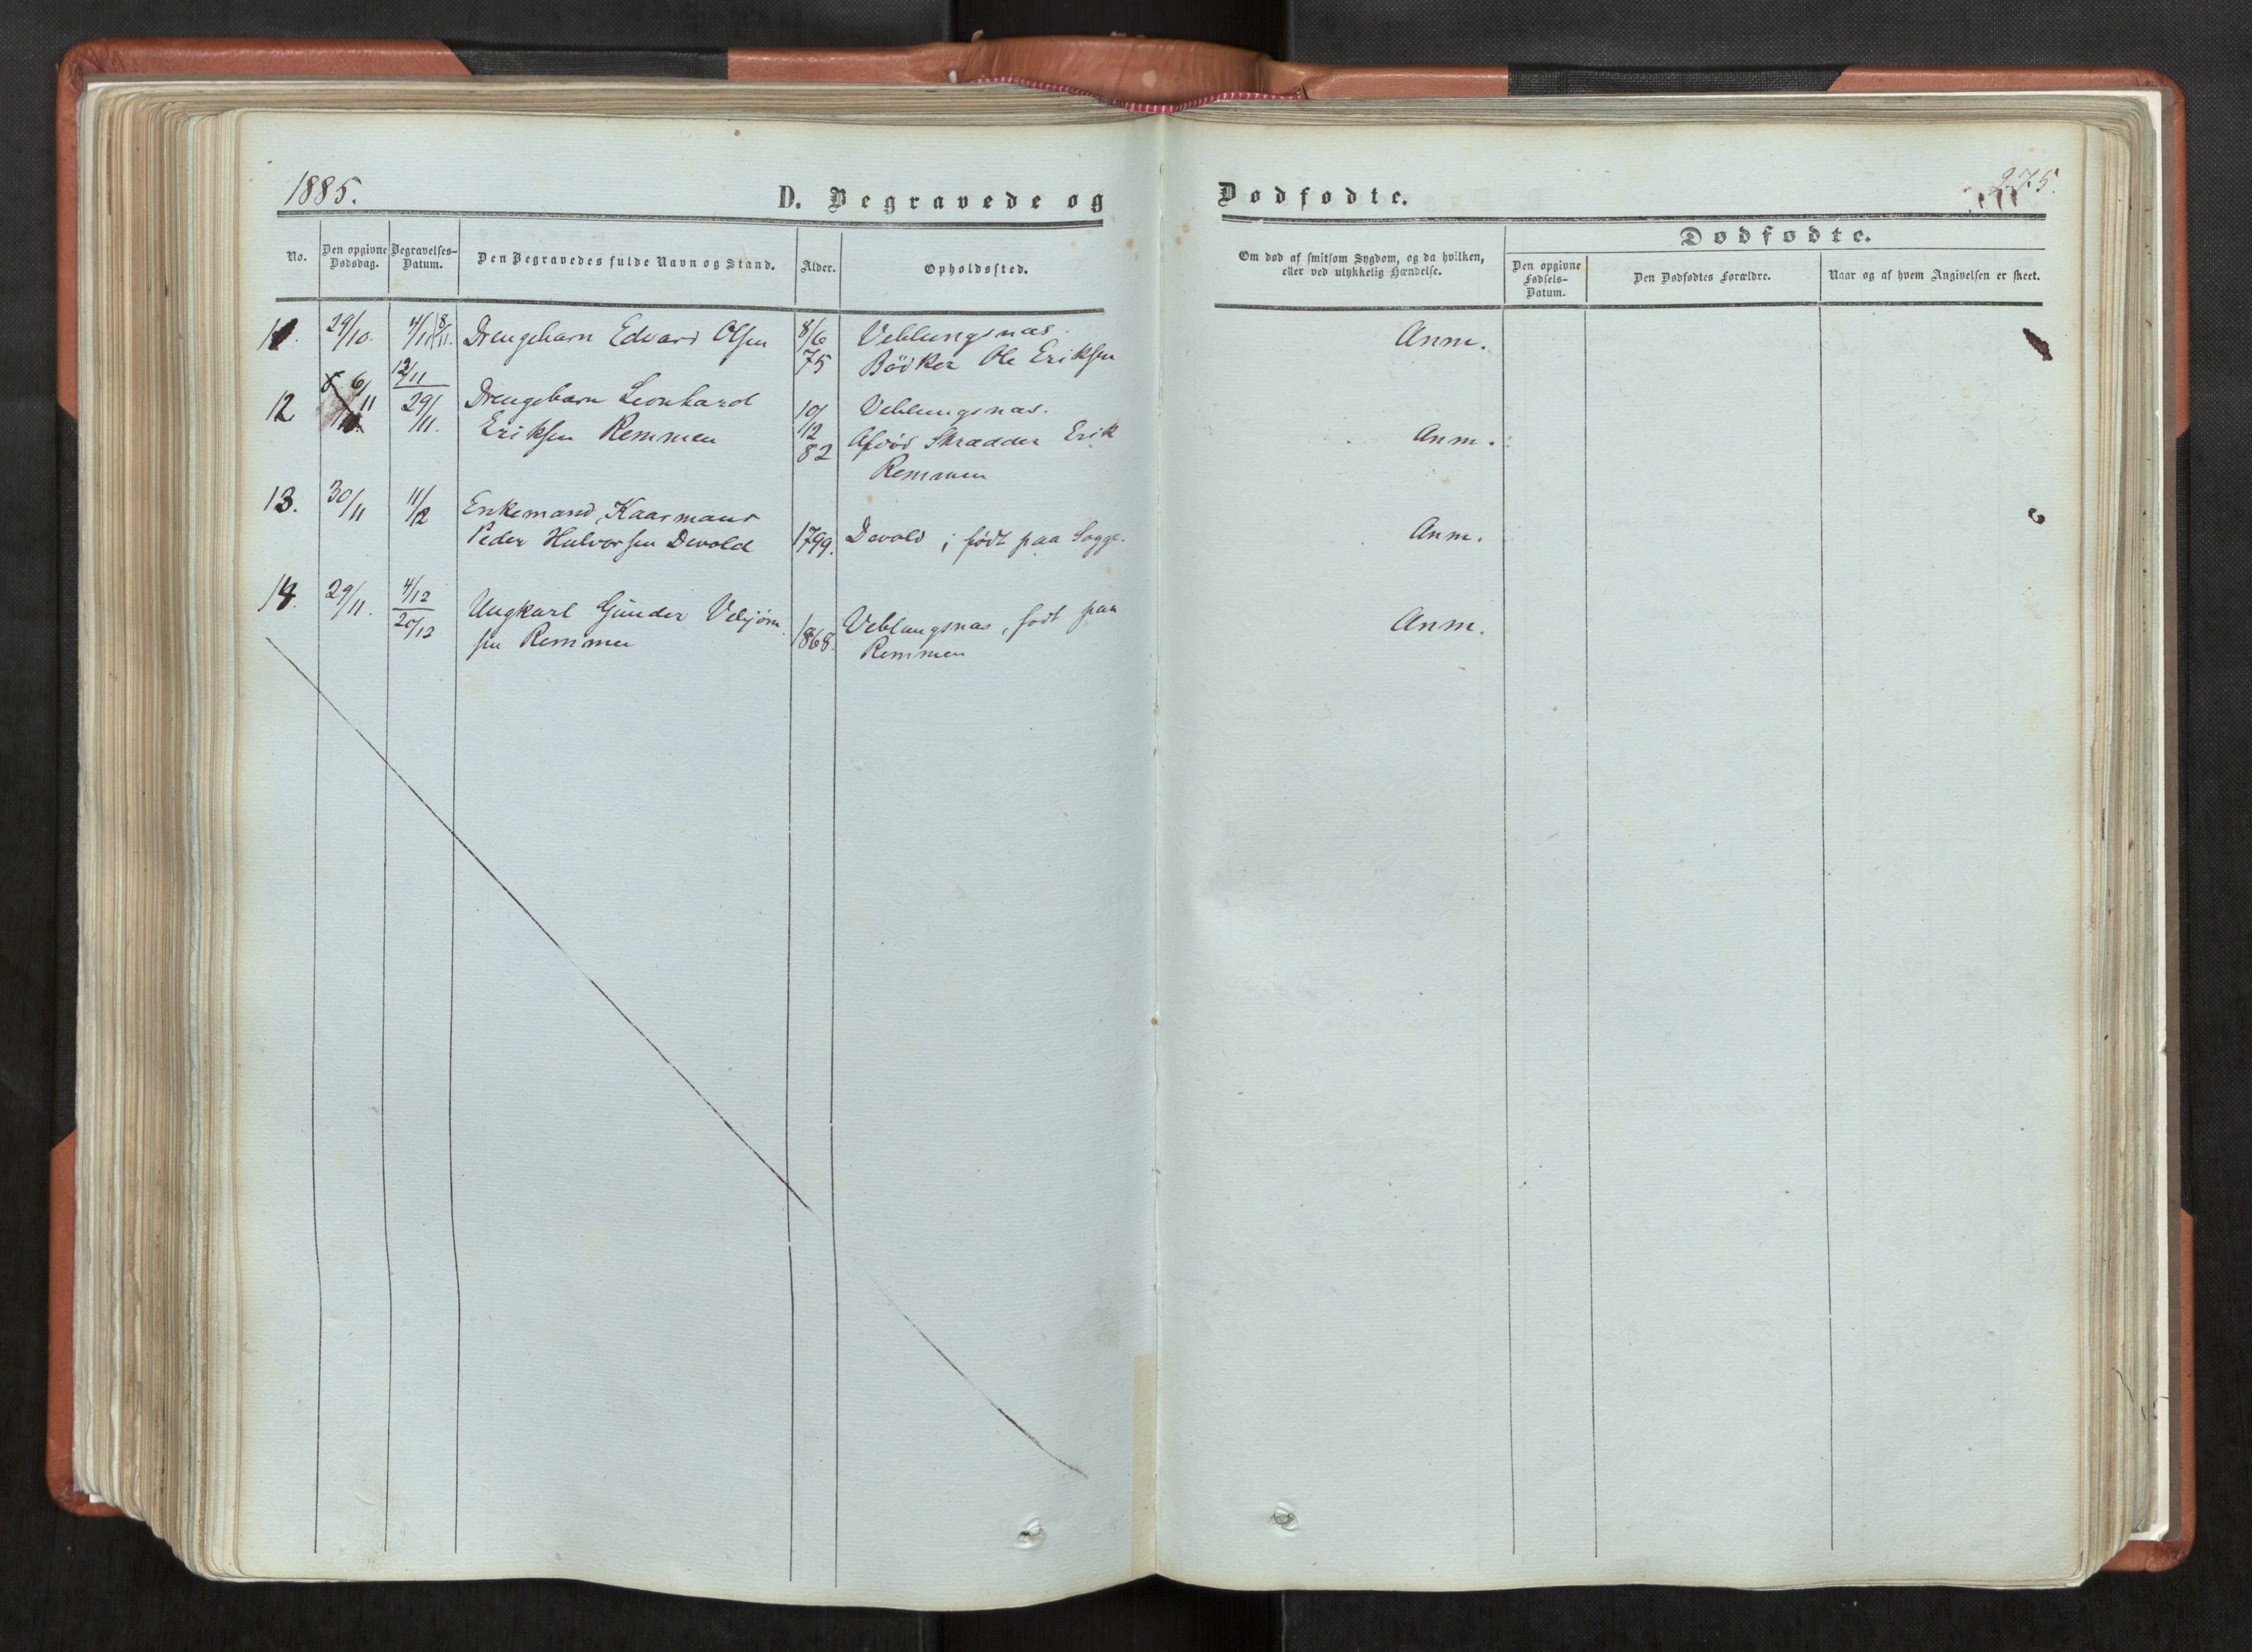 1885.
D. Begravede og
Dødfødte.
275.
No.
Den opgivne Dødsdag.
Begravelses-Datum.
Den Begravedes fulde Navn og Stand.
Alder.
Opholdssted.
Om død af smitsom Sygdom, og da hvilken, eller ved ulykkelig Hændelse.
Dødfødte.
Den opgivne Fødsels-Datum.
Den Dødfødtes Forældre.
Naar og af hvem Angivelsen er skeet.
11. 29/10. 4/11 8/11. Drengebarn Edvard Olsen 8/6 Veblungsnæs. Anm.
75 Bödker Ole Eriksen
12/11
12 6/11 29/11. Drengebarn Leonhard 10/12 Veblungsnæs.
Eriksen Remmen 82 Afdöd Skrædder Erik Anm.
Remmen
13. 30/11 11/12 Enkemand, Kaarmand
Peder Halvorsen Devold 1799. Devold; födt paa Sogge. Anm.
14. 29/11. 4/12 Ungkarl Gunder Vebjörn- Veblungsnæs, födt paa Anm.
20/12 sen Remmen 1868. Remmen